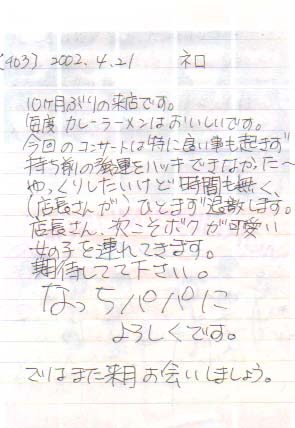 (403) 2002.4.21 ネロ
10ヶ月ぶりの来店です。
毎度カレーラーメンはおいしいです。
今回のコンサートは特に良い事も起きず
持ち前の強運をハッキできなかった〜
ゆっくりしたいけど時間も無く、
(店長さんが)ひとまず退散します。
店長さん、次こそボクが可愛い
女の子を連れてきます。
期待してて下さい。
なっちパパに
よろしくです。
ではまた来月お会いしましょう。